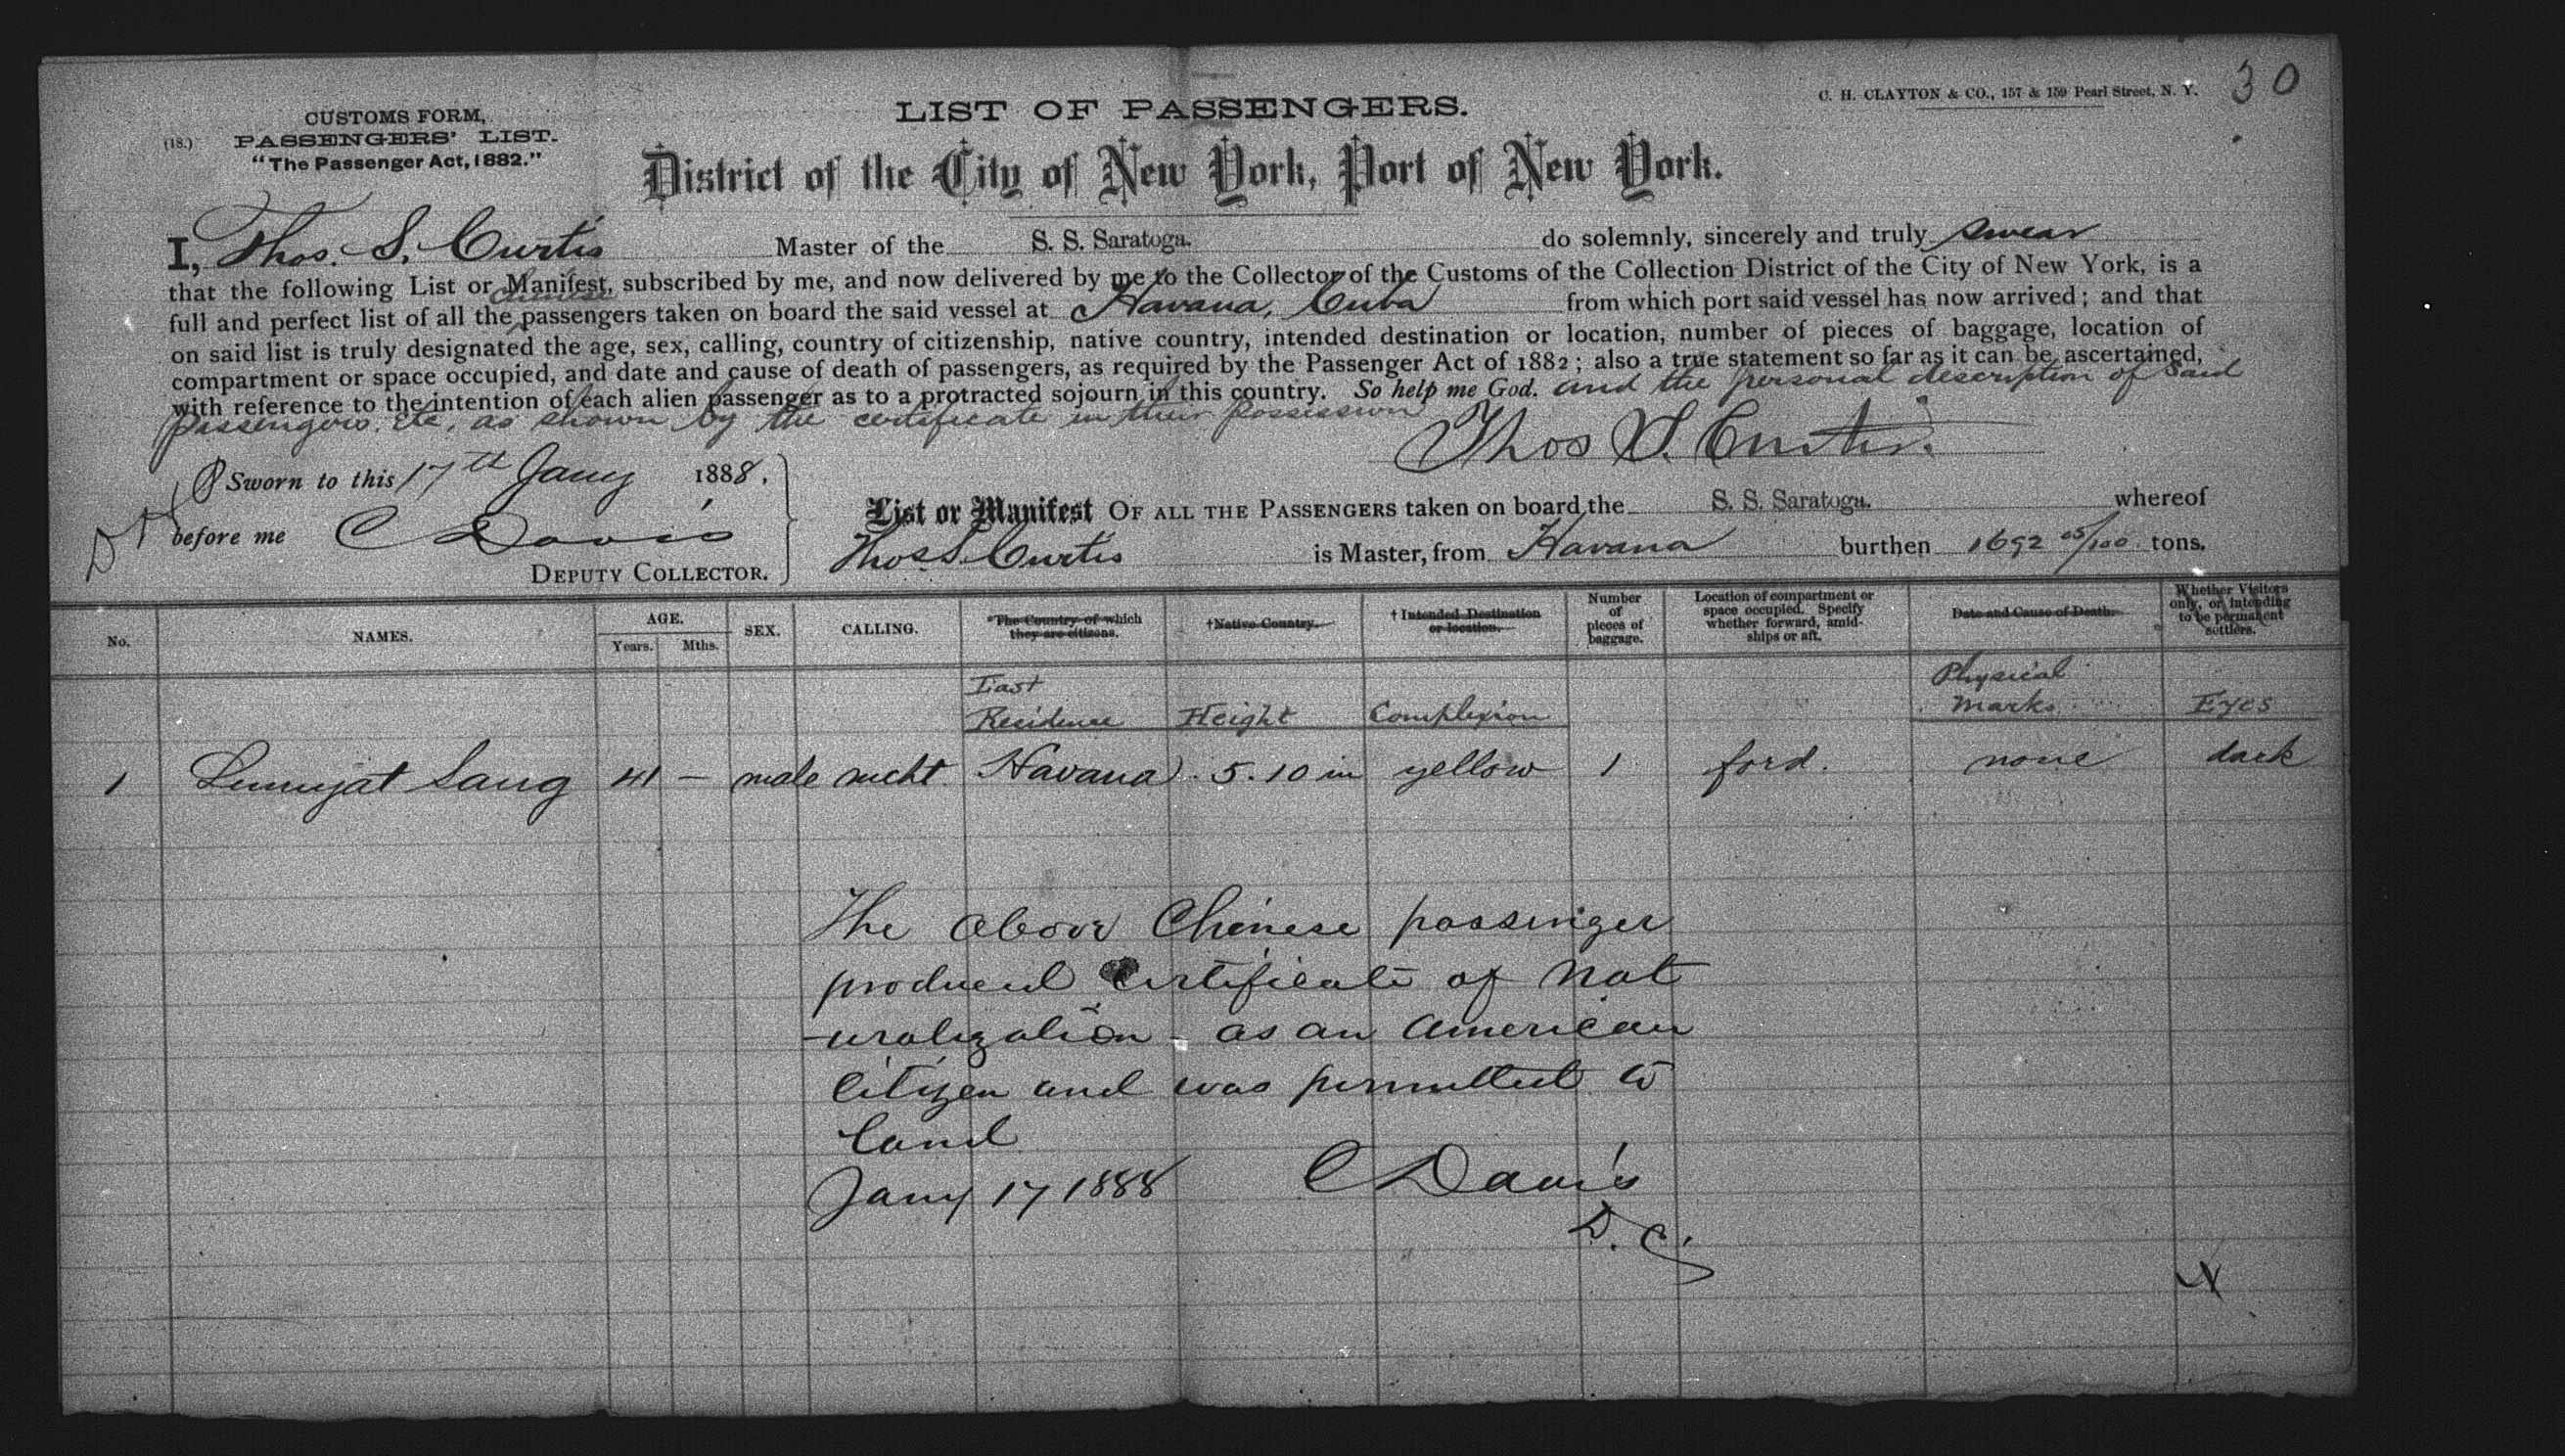 30
C. H. CLAYTON & CO., 157 & 159 Pearl Street, N. Y.
(18.)
CUSTOMS FORM,
PASSENGERS' LIST.
"The Passenger Act, 1882."
LIST OF PASSENGERS.
District of the City of New York, Port of New York.
I, Thos. S. Curtis Master of the S. S. Saratoga. do solemnly, sincerely and truly swear
that the following List or Manifest, subscribed by me, and now delivered by me to the Collector of the Customs of the Collection District of the City of New York, is a
Chinese
full and perfect list of all the passengers taken on board the said vessel at Havana, Cuba from which port said vessel has now arrived; and that
on said list is truly designated the age, sex, calling, country of citizenship, native country, intended destination or location, number of pieces of baggage, location of
compartment or space occupied, and date and cause of death of passengers, as required by the Passenger Act of 1882; also a true statement so far as it can be ascertained,
with reference to the intention of each alien passenger as to a protracted sojourn in this country. So help me God. and the personal description of said
passengers, etc, as shown by the certificate in their possession
Thos S. Curtis.
Sworn to this 17th Jany 1888.
before me C Davis
DEPUTY COLLECTOR.
List or Manifest OF ALL THE PASSENGERS taken on board the S. S. Saratoga. whereof
Thos S. Curtis is Master, from Havana burthen 1692 05/100 tons.
No. NAMES. AGE. Years. Mths. SEX. CALLING. *The Country of which they are citizens. †Native Country. †Intended Destination or location. Number of pieces of baggage. Location of compartment or space occupied. Specify whether forward, amidships or aft. Date and Cause of Death. Whether Visitors only, or intending to be permanent settlers.
Last Residence Height Complexion Physical Marks Eyes
1 Sang 41 — male mcht Havana 5.10 in yellow 1 ford. none dark
The above Chinese passenger
produced Certificate of Nat
-uralization - as an American
Citizen and was permitted to
land
Jany 17 1888 C Davis
D. C.